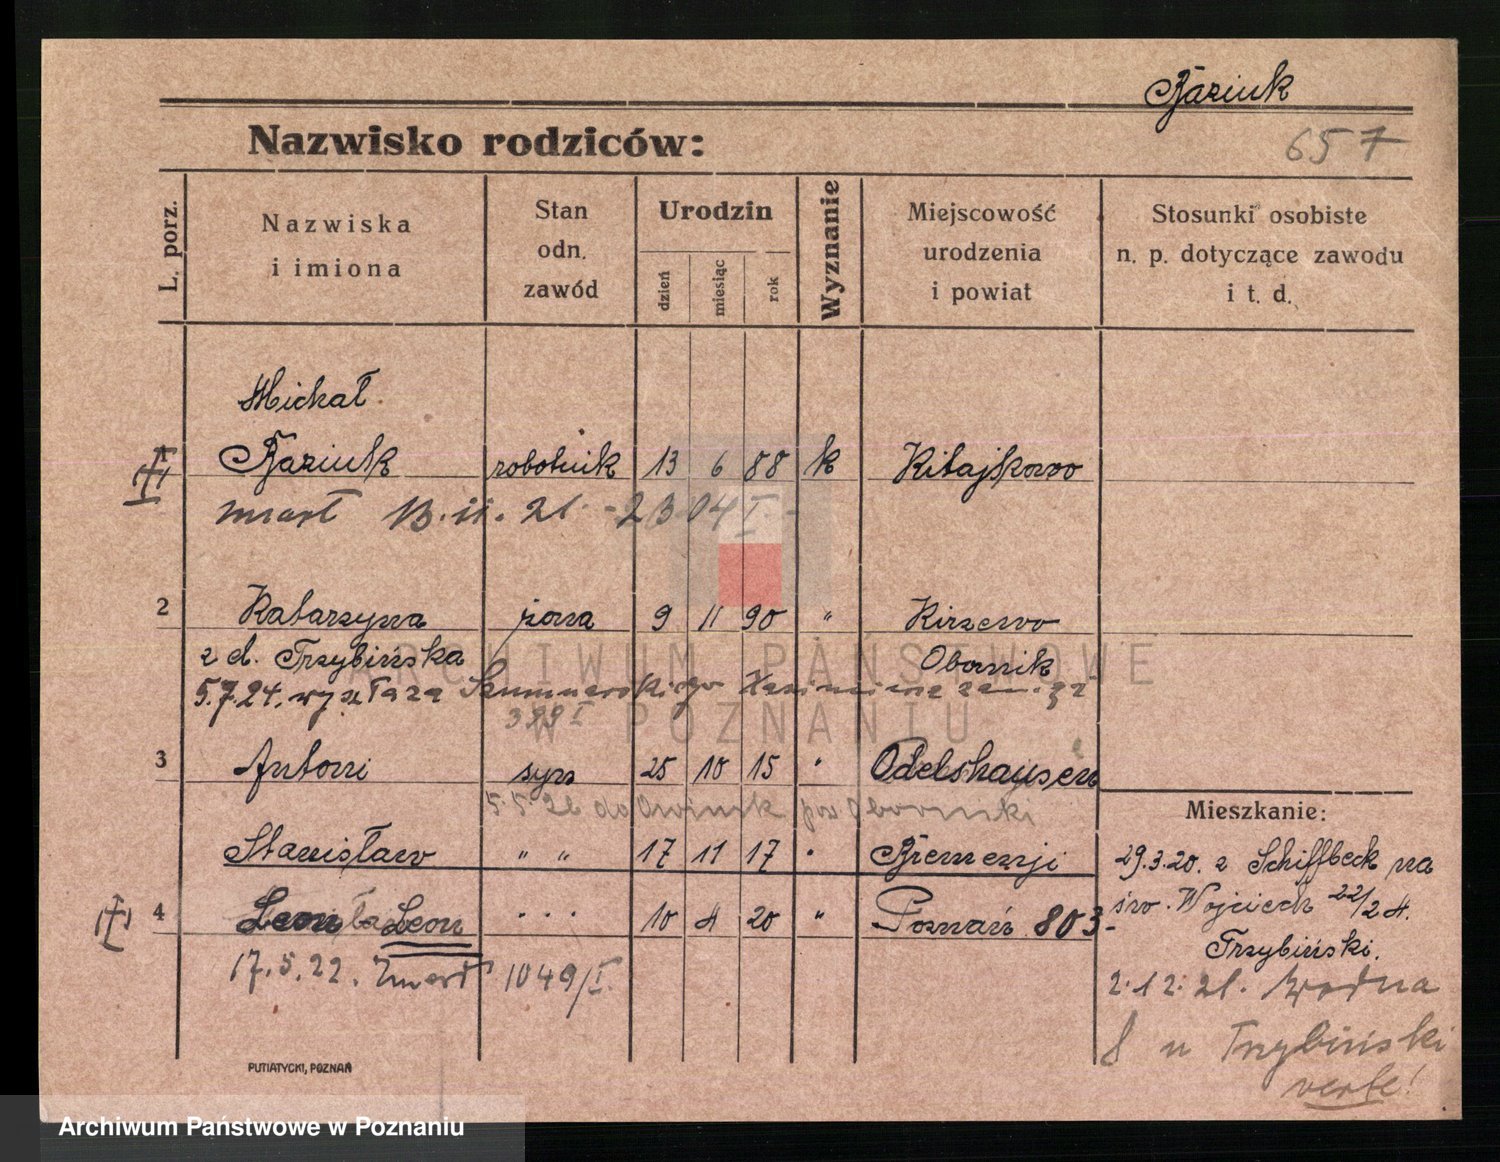 Baziuk
657
Nazwisko rodziców:
L. porz.
Nazwiska i imiona
Stan odn. zawód
Urodzin
dzień
miesiąc
rok
Wyznanie
Miejscowość urodzenia i powiat
Stosunki osobiste n. p. dotyczące zawodu i t. d.
Michał
1 Baziuk robotnik 13 6 88 k Kitajkowo
zmarł 13. 11. 21. - 2304 I. -
2 Katarzyna żona 9 11 90 " Kirzewo
z d. Trzybińska Obornik
5.7.24. wyszła za Kazimierza
399 I
3 Antoni syn 25 10 15 " Odelshausen
5.5.26 do Owinsk pow Obornicki
Mieszkanie:
Stanisław " " 17 11 17 " Bremenji
29.3.20. z Schiffbeck na
4 Leon Leon " " " 10 4 20 " Poznań 803-
św. Wojciech 22/24.
Trzybiński.
17.5.22. Zmarł 1049/I.
2.12.21. Wodna
8 u Trzybiński
verte!
PUTIATYCKI, POZNAŃ
ARCHIWUM PAŃSTWOWE
W POZNANIU
Archiwum Państwowe w Poznaniu